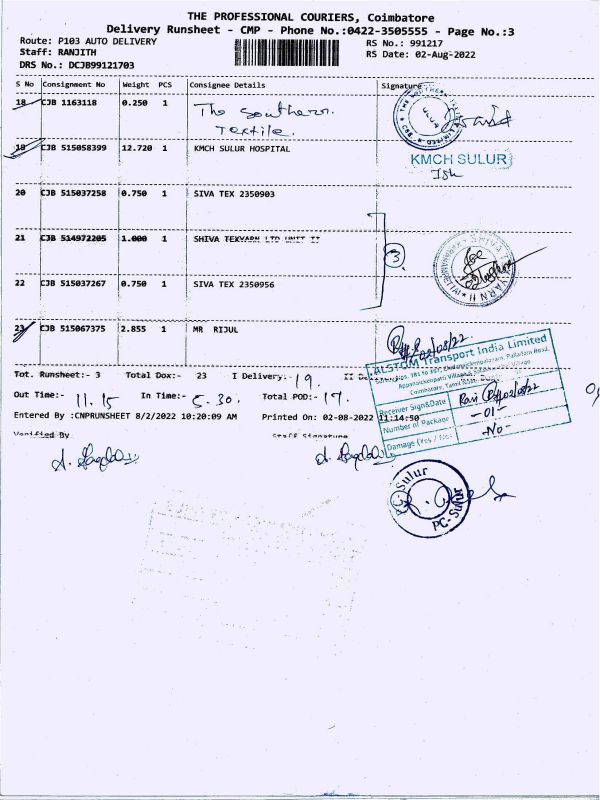 THE PROFESSIONAL COURIERS, Coimbatore
Delivery Runsheet - CMP - Phone No.:0422-3505555 - Page No.:3
Route: P103 AUTO DELIVERY RS No.: 991217
Staff: RANJITH RS Date: 02-Aug-2022
DRS No.: DCJB99121703
S No Consignment No Weight PCS Consignee Details Signature
18 CJB 1163118 0.250 1 The Southern
Textile.
SULUR
19 CJB 515058399 12.720 1 KMCH SULUR HOSPITAL
KMCH SULUR
20 CJB 515037258 0.750 1 SIVA TEX 2350903
21 CJB 514972205 1.000 1 SHIVA TEXYARN LTD UNIT II
3
SHIVA YARN II
22 CJB 515037267 0.750 1 SIVA TEX 2350956
23 CJB 515067375 2.855 1 MR RIJUL
02/08/22
ALSTOM Transport India Limited
Coimbatore, Tamil
Receiver Sign&Date Ravi 02/08/22
Number of Package -01-
Damage (Yes / No) -No-
Tot. Runsheet:- 3 Total Dox:- 23 I Delivery:- 19. II
Out Time:- 11.15 In Time:- 5.30. Total POD:- 17.
Entered By :CNPRUNSHEET 8/2/2022 10:20:09 AM Printed On: 02-08-2022 11:14:50
Verified By Staff Signature
PC-Sulur
PC-Sulur